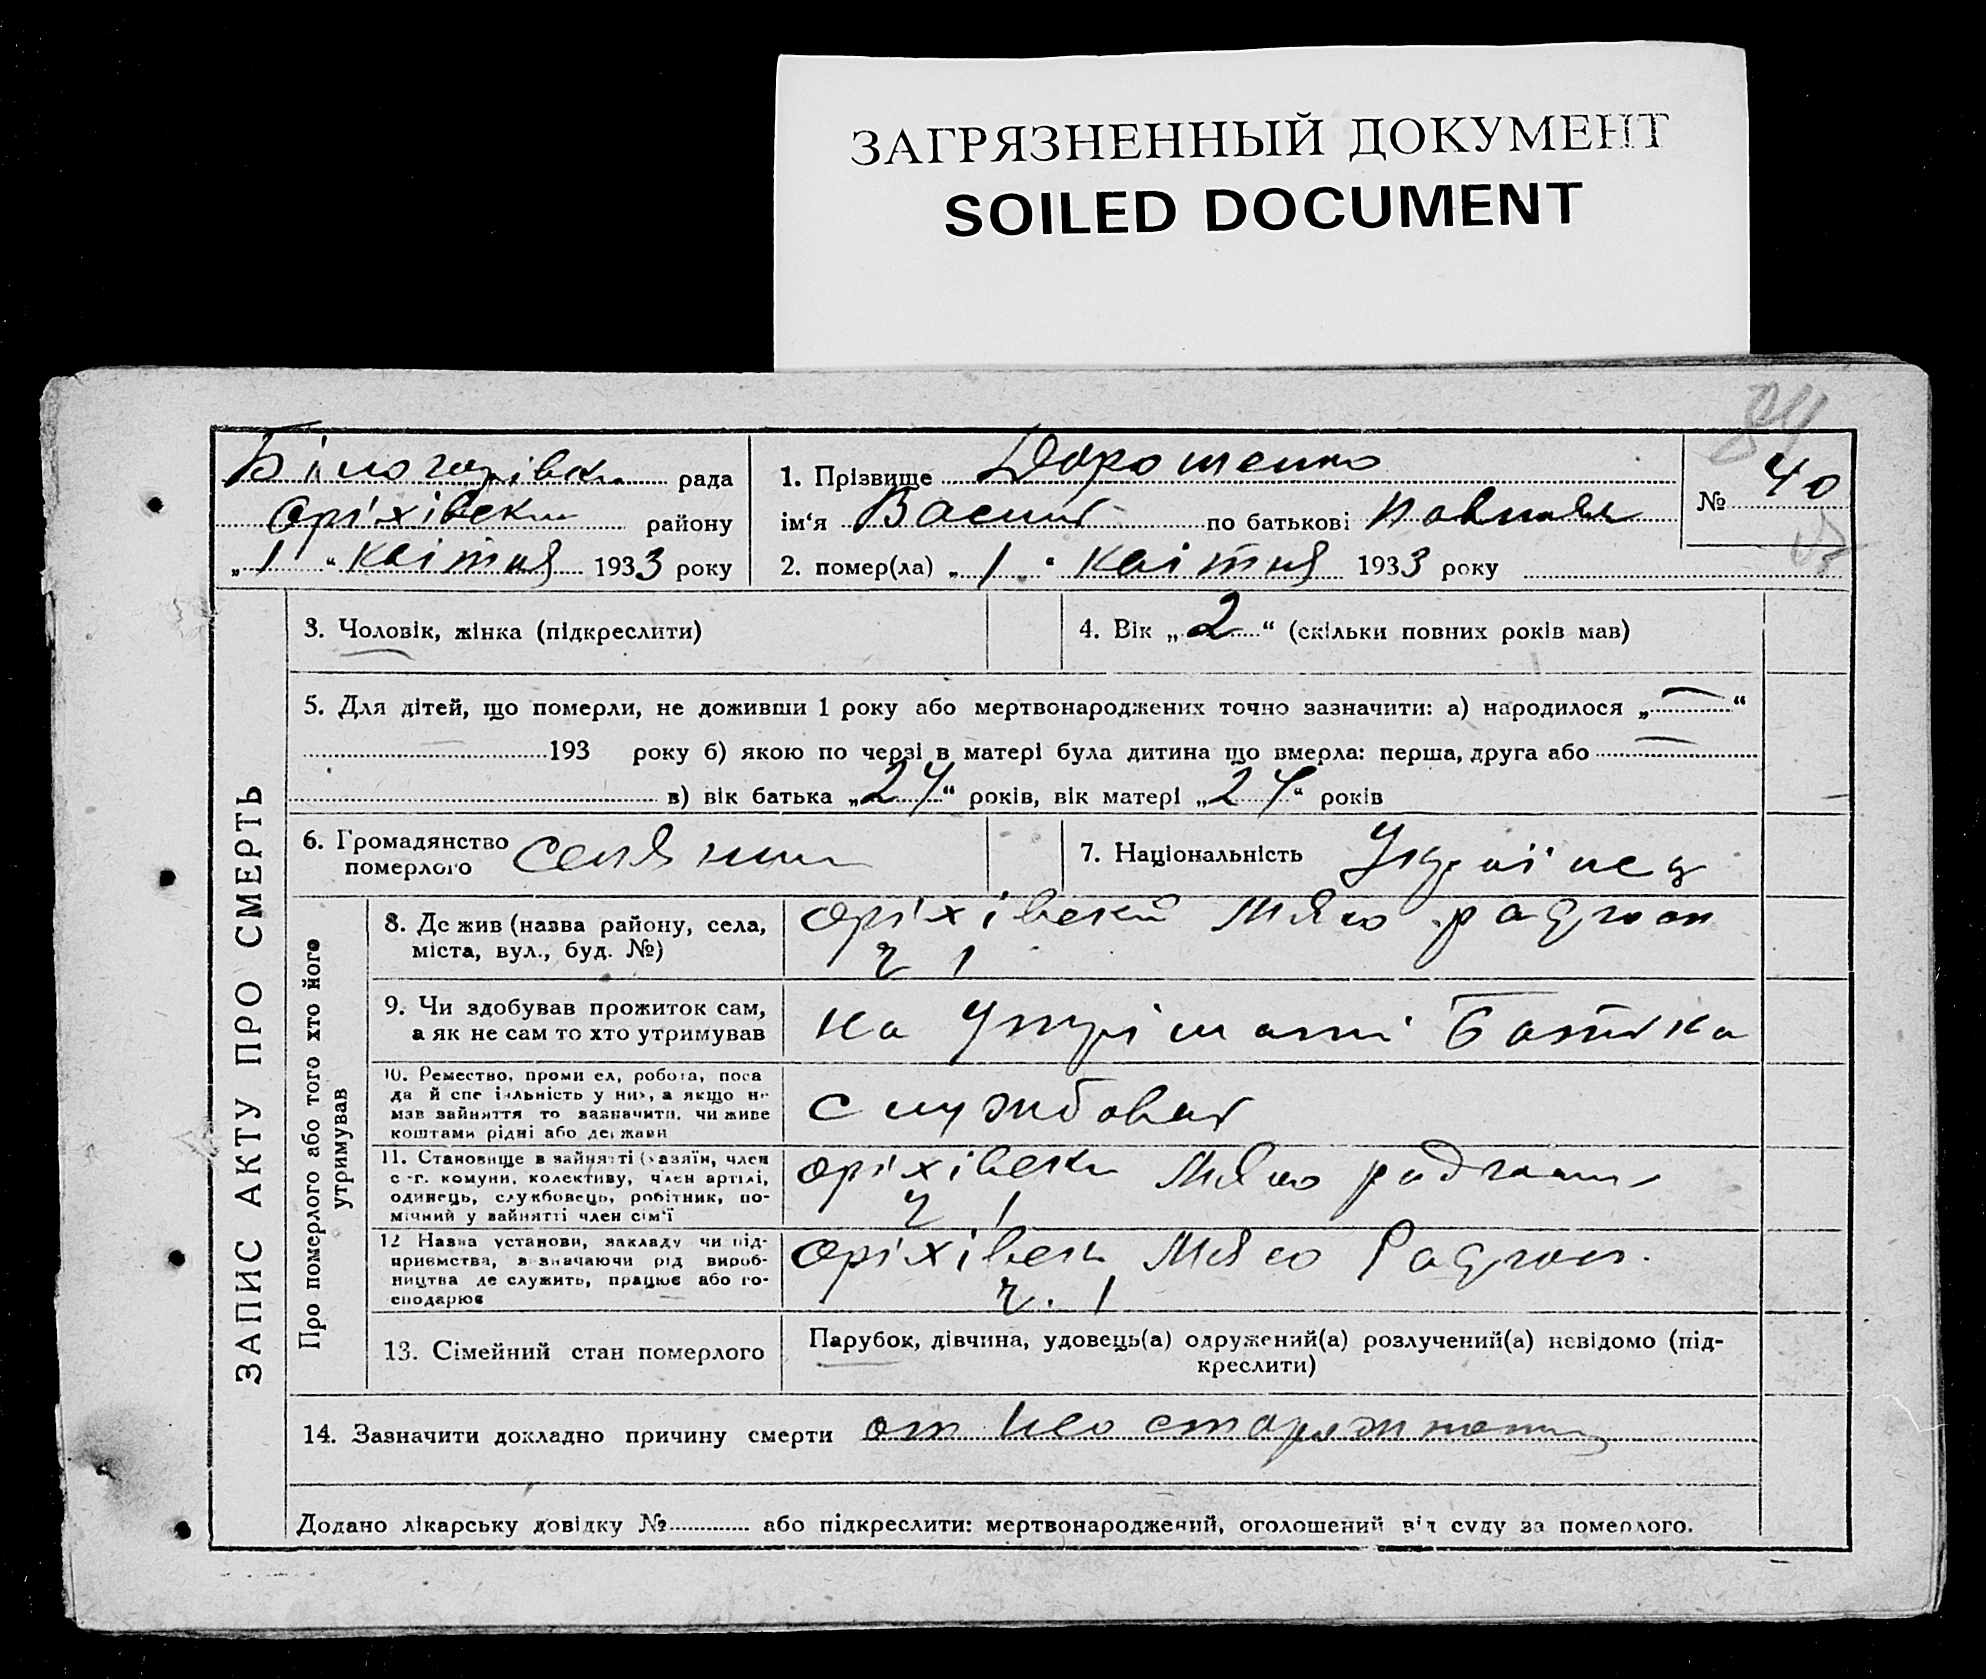 ЗАГРЯЗНЕННЫЙ ДОКУМЕНТ
SOILED DOCUMENT
84
Білогорівськ рада
Оріхівськ району
„1“ квітня 1933 року
1. Прізвище Дорошенко
ім‘я Василь по батькові Павлов
2. помер(ла) „1“ квітня 1933 року
№ 40
ЗАПИС АКТУ ПРО СМЕРТЬ
3. Чоловік, жінка (підкреслити)
4. Вік „2“ (скільки повних років мав)
5. Для дітей, що померли, не доживши 1 року або мертвонароджених точно зазначити: а) народилося „—“
193 року б) якою по черзі в матері була дитина що вмерла: перша, друга або —
в) вік батька „24“ років, вік матері „24“ років
6. Громадянство
померлого селянин
7. Національність Українец
Про померлого або того хто його
утримував
8. Де жив (назва району, села,
міста, вул., буд. №)
Оріхівський Мясо радгосп
ч 1
9. Чи здобував прожиток сам,
а як не сам то хто утримував
на утрімані Батька
10. Ремество, промисел, робота, поса
да й спеціяльність у них, а якщо не
мав зайняття то зазначити, чи живе
коштами рідні або держави
службовець
11. Становище в зайнятті (хазяїн, член
с-г. комуни, колективу, член артілі,
одинець, службовець, робітник, по-
мічний у зайнятті член сім‘ї
Оріхівськ Мясо радгосп
ч 1
12 Назва установи, закладу чи під-
приємства, зазначаючи рід вироб-
ництва де служить, працює або го-
сподарює
Оріхівськ Мясо Радгосп.
ч. 1
13. Сімейний стан померлого
Парубок, дівчина, удовець(а) одружений(а) розлучений(а) невідомо (під-
креслити)
14. Зазначити докладно причину смерти от
Додано лікарську довідку № або підкреслити: мертвонароджений, оголошений від суду за померлого.